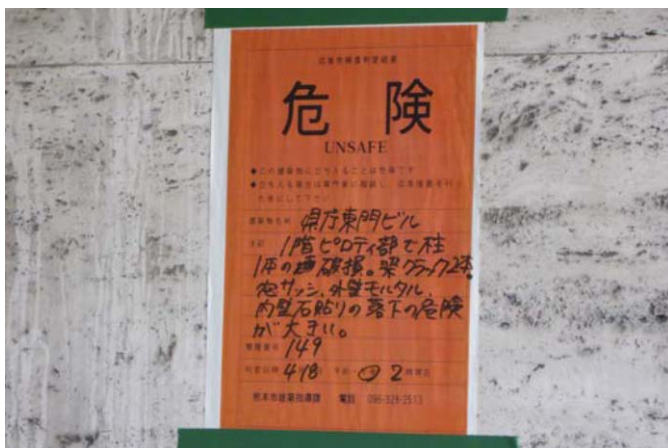 応急危険度判定結果
危 険
UNSAFE
◆この建築物に立ち入ることは危険です
◆立ち入る場合は専門家に相談し、応急措置を行
った後にして下さい
建築物名称 県庁東門ビル
注記 1階ピロティ部で柱
1本の破損。梁クラック2本
窓サッシ、外壁モルタル、
内壁石貼りの落下の危険
が大きい。
整理番号 149
判定日時 4 18 午前 2 時現在
熊本市建築指導課 電話 096-328-2513